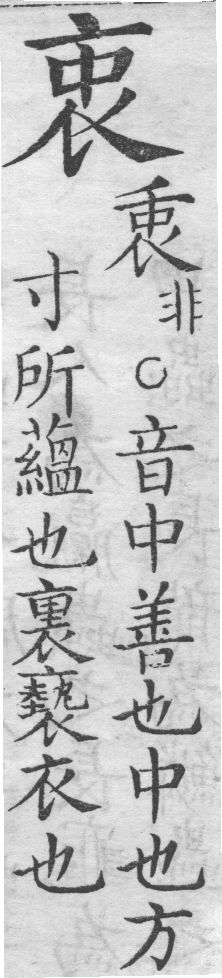 衷
𮕩非○音中善也中也方
寸所蘊也裏褻衣也